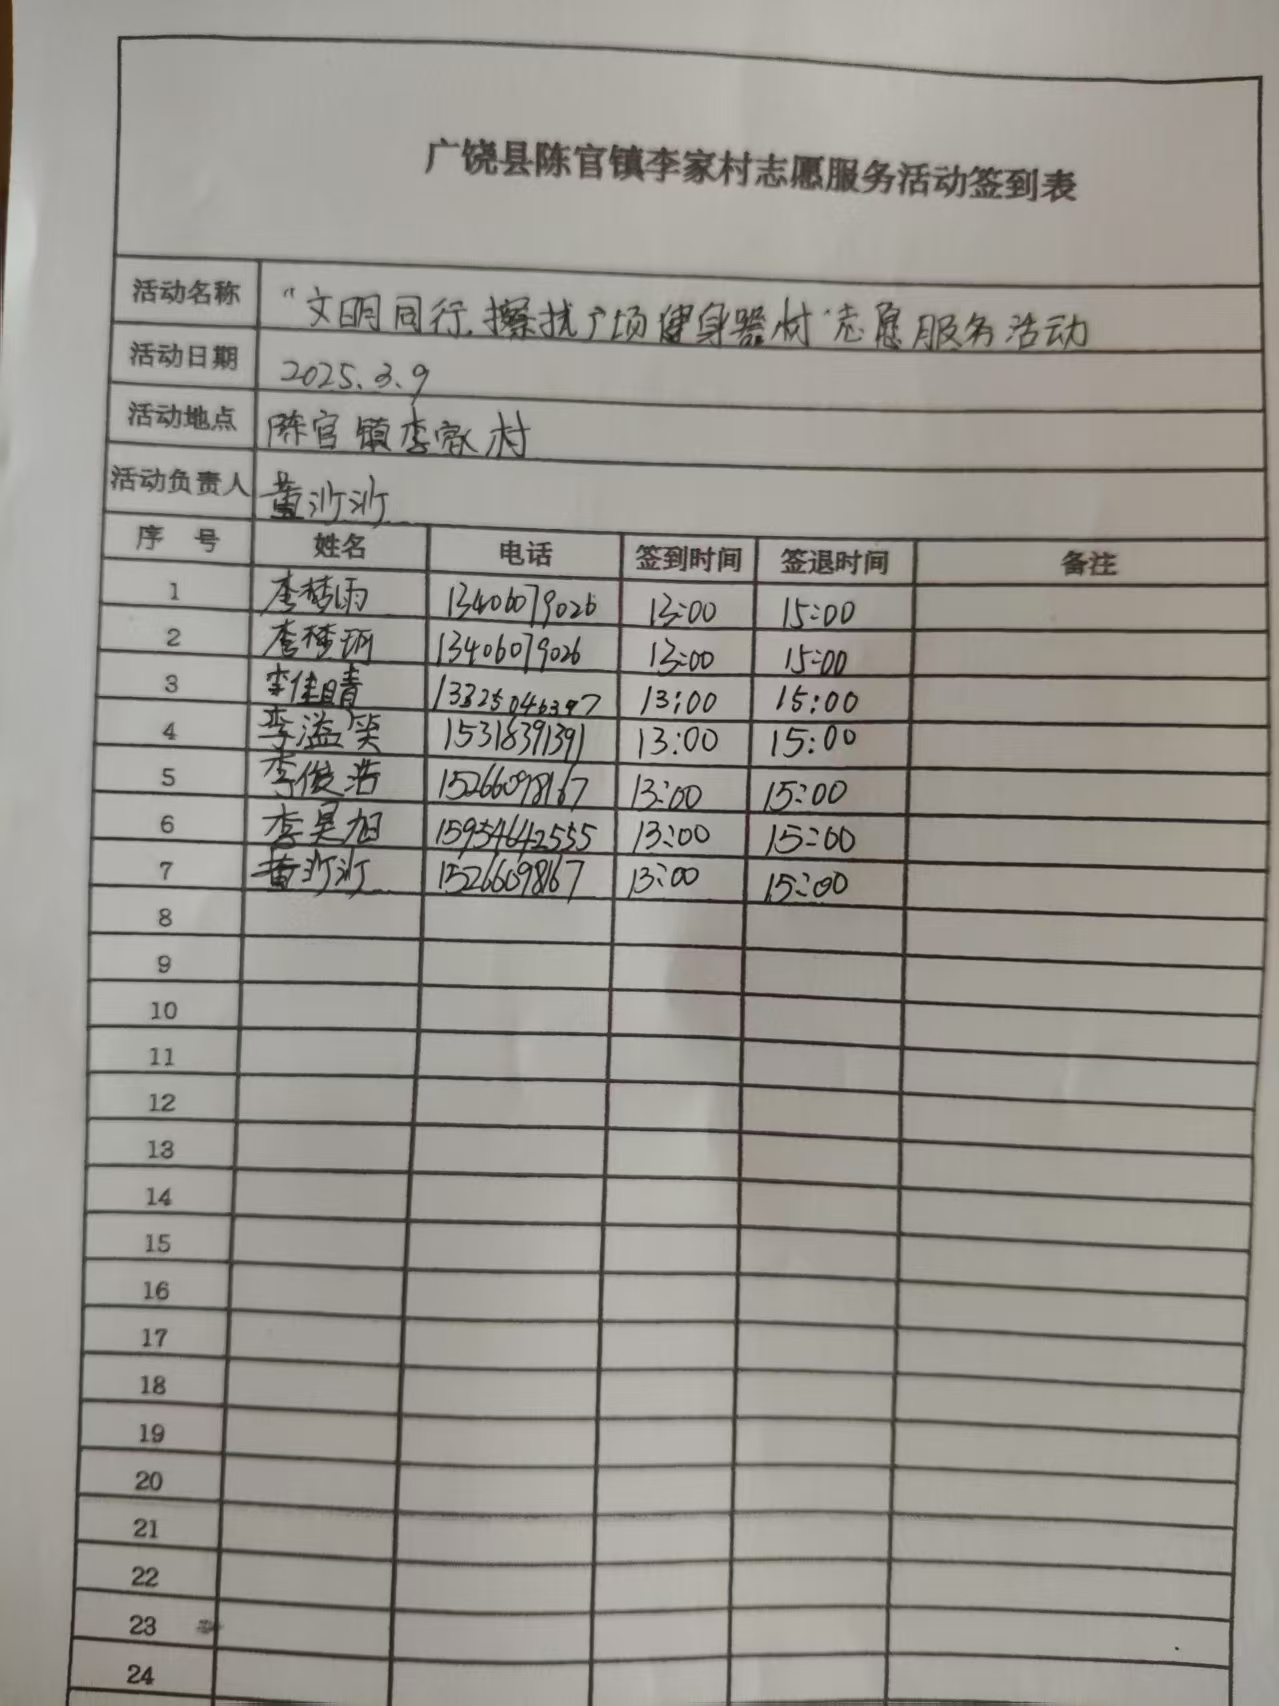 广饶县陈官镇李家村志愿服务活动签到表
活动名称 “文明同行.擦扰广场健身器材”志愿服务活动
活动日期 2025.3.9
活动地点 陈官镇李家村
活动负责人 黄沙沙
序号 姓名 电话 签到时间 签退时间 备注
1 李梦雨 13406079026 13:00 15:00
2 李梦珂 13406079026 13:00 15:00
3 李佳晴 13325046397 13:00 15:00
4 李溢笑 15318391391 13:00 15:00
5 李俊浩 15266098167 13:00 15:00
6 李昊旭 15954642555 13:00 15:00
7 黄沙沙 15266098167 13:00 15:00
8
9
10
11
12
13
14
15
16
17
18
19
20
21
22
23
24